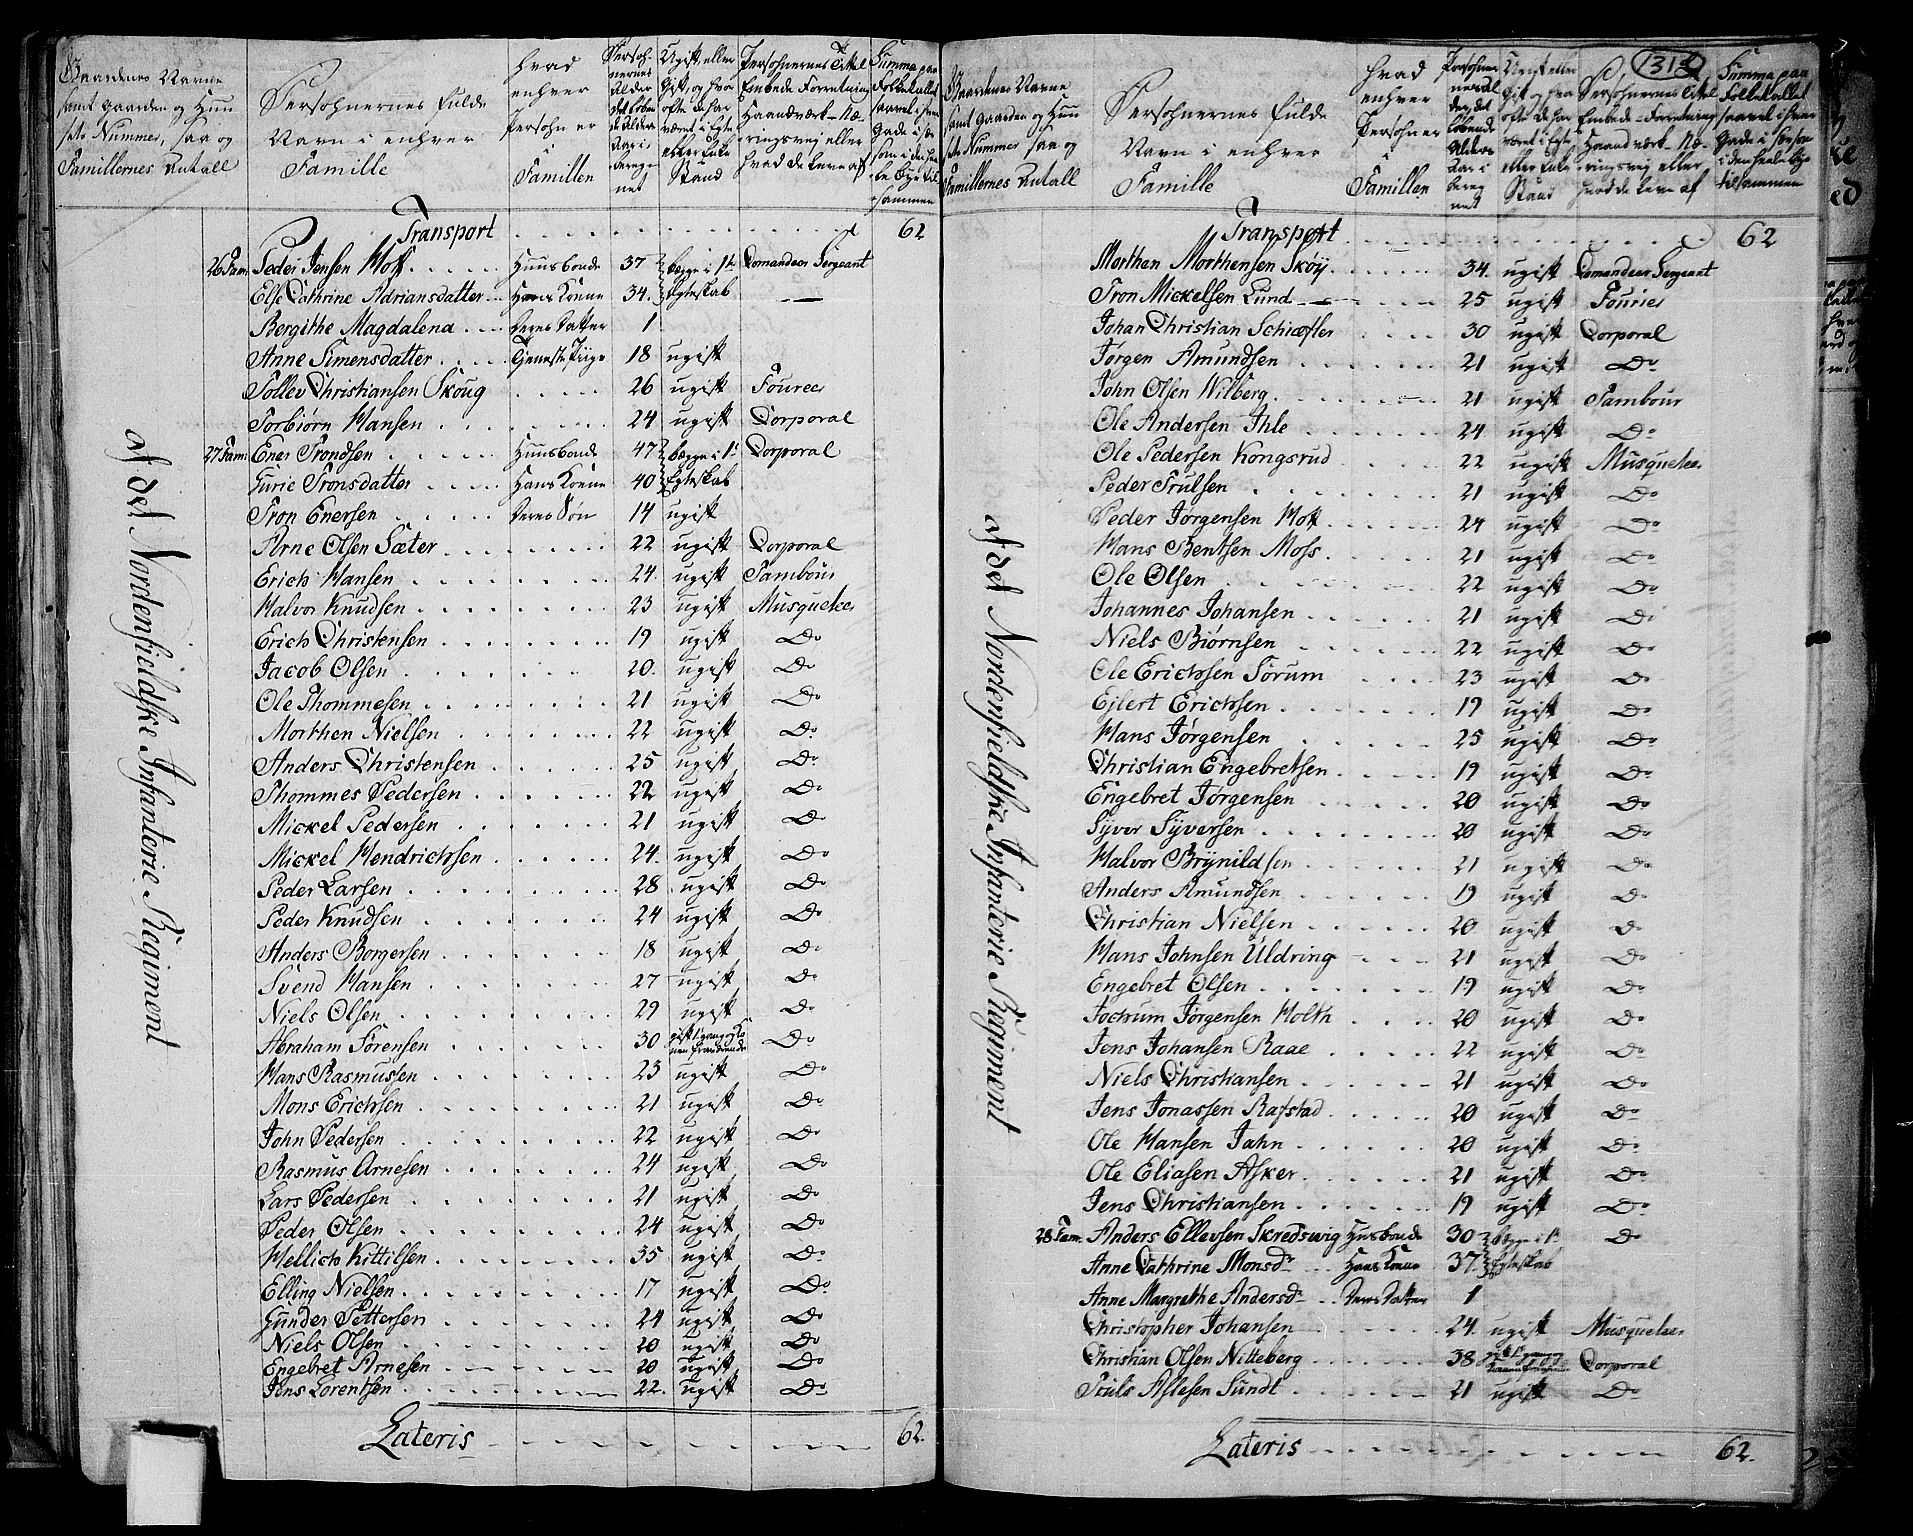 Gaardenes Navne
samt Gaarden og Huu
sets Nummer, saa og
Famillernes Antall
Persohnernes fulde
Navn i enhver
Famille
hvad
enhver
Persohn er
i
Famillen
Persoh-
nernes
Alder
det løben
de Alders
Aar i-
bereg-
net
Ugift, eller
Gift, og hvor
ofte de har
været i Egte
eller Enke
Stand
Persohnernes Titel
Embede Forretning
Haandværk - Næ-
ringsvej eller
hvad de leve af
Summa paa
Folketallet
saavel i hver
Gade i sær
som i den hee
le Bye til-
sammen
Transport 62
26 Fam: Peder Jensen Moss Huusbonde 37 begge i 1te Comandeer Sergeant
Else Cathrine Adriansdatter Hans Konne 34. Egteskab —
Bergithe Magdalena deres Datter 1
Anne Simensdatter Tjeneste Piige 18 ugift
Tollev Christiansen Skoug 26 ugift Foureer
Torbiørn Hansen 24 ugift Corporal
27 Fam: Ener Trondsen Huusbonde 47 begge i 1te Corporal
Gurie Tronsdatter Hans Konne 40 Egteskab
Tron Enersen deres Søn 14 ugift
Arne Olsen Sæter 22 ugift Corporal
Erich Hansen 24. ugift Tambour
Halvor Knudsen 23 ugift Musqueteer
Erich Christensen 19 ugift Do
Jacob Olsen 20. ugift Do
Ole Thommesen 21 ugift Do
Morthen Nielsen 22 ugift Do
Anders Christensen 25 ugift Do
Thommes Pedersen 22 ugift Do
Mickel Pedersen 21 ugift Do
Mickel Hendrichsen 24. ugift Do
Peder Larsen 28 ugift Do
Peder Knudsen 24 ugift Do
Anders Borgersen 18 ugift Do
Svend Hansen 27 ugift Do
Niels Olsen 29 ugift Do
Abraham Sørensen 30 gift 1 gang Do
Hans Rasmussen 23 ugift Do
Mons Erichsen 21 ugift Do
John Pedersen 22 ugift Do
Rasmus Arnesen 24 ugift Do
Lars Pedersen 21 ugift Do
Peder Olsen 24 ugift Do
Mellich Kittilsen 35 ugift Do
Elling Nielsen 17 ugift Do
Gunder Pettersen 24 ugift Do
Niels Olsen 20 ugift Do
Engebret Arnesen 20 ugift Do
Jens Lorentsen 22. ugift Do
Lateris 62.
af det Nordenfieldske Infanterie Regiment
1313
Gaardenes Navne
samt Gaarden og Huu
sets Nummer saa og
Famillernes Antall
Persohnernes fulde
Navn i enhver
Famille
hvad
enhver
Persohn er
i
Famillen
Persohner
nes Al
der det
løbende
Alders
Aar i
bereg
net
Ugift eller
Gift og hvor
ofte de har
været i Egte
eller Enke
Stand
Persohnernes Titel
Embede - Forretning
Haandværk - Næ-
ringsvej eller
hvad de leve af
Summa paa
Folketallet
saavel i hver
Gade i sær som
i den heele bye
tilsammen
Transport 62
Morthen Morthensen Skøy 34. ugift Comandeer Sergeant
Tron Mickelsen Lund 25 ugift Foureer
Johan Christian Schiøsler 30 ugift Corporal
Jørgen Amundsen 21 ugift Do
John Olsen Wilberg 21 ugift Tambour
Ole Andersen Ihle 24 ugift Do
Ole Pedersen Kongsrud 22 ugift Musqueteer
Peder Trulsen 21 ugift Do
Peder Jørgensen Moss 24 ugift Do
Hans Bentsen Moss 21 ugift Do
Ole Olsen 22 ugift Do
Johannes Johansen 21 ugift Do
Niels Biørnsen 22 ugift Do
Ole Erichsen Sørum 23 ugift Do
Ejlert Erichsen 19 ugift Do
Hans Jørgensen 25 ugift Do
Christian Engebretsen 19 ugift Do
Engebret Jørgensen 20 ugift Do
Syver Syversen 20 ugift Do
Halvor Brynildsen 21 ugift Do
Anders Amundsen 19 ugift Do
Christian Nielsen 20 ugift Do
Hans Johnsen Uldring 21 ugift Do
Engebret Olsen 19 ugift Do
Jochum Jørgensen Molth 20 ugift Do
Jens Johansen Raae 22 ugift Do
Niels Christiansen 21 ugift Do
Jens Jonassen Rafstad 20 ugift Do
Ole Hansen Jahn 20 ugift Do
Ole Eliasen Asker 21 ugift Do
Jens Christiansen 19 ugift Do
28 Fam: Anders Ellevsen Skredswig Husbonde 30 begge i 1te Do
Anne Cathrine Monsdr Hans Konne 37. Egteskab
Anne Margrethe Andersdr deres Datter 1
Christopher Johansen 24. ugift Musqueteer
Christian Olsen Nitteberg 38 gift 1 gang Corporal
Truls Aslesen Sundt 21 ugift Do
Lateris 62.
af det Nordenfieldske Infanterie Regiment